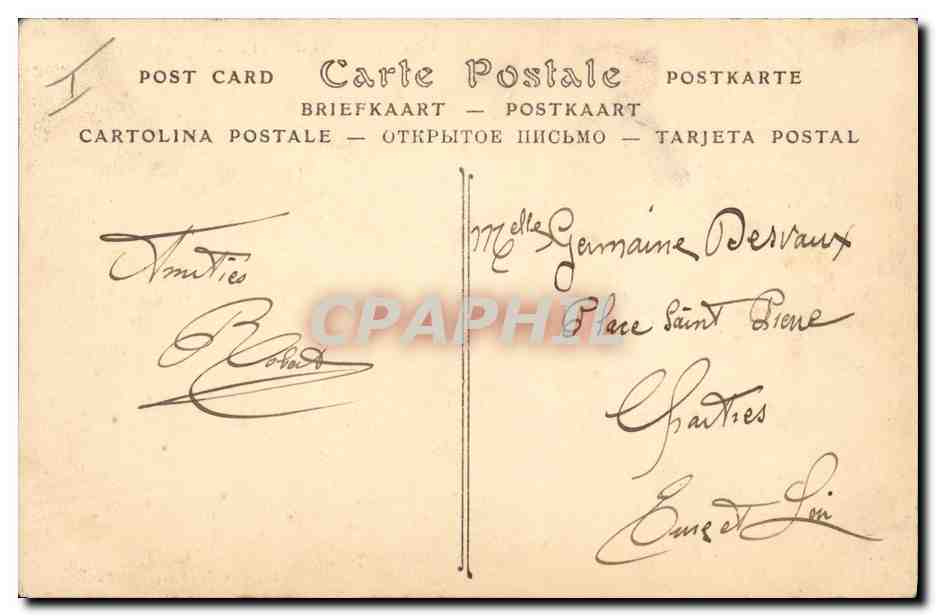 I
POST CARD Carte Postale POSTKARTE
BRIEFKAART — POSTKAART
CARTOLINA POSTALE — ОТКРЫТОЕ ПИСЬМО — TARJETA POSTAL
Amitiés
Robert
Melle Germaine Desvaux
Place Saint Pierre
Chartres
Eure et Loir
CPAPHIL